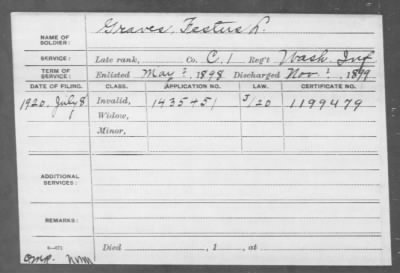 Graves, Festus L.
NAME OF SOLDIER:
SERVICE: Late rank, Co. C, 1 Reg't Wash. Inf
TERM OF SERVICE: Enlisted May ?, 1898 Discharged Nov. 1, 1899
DATE OF FILING. CLASS. APPLICATION NO. LAW. CERTIFICATE NO.
1920. July 8 Invalid, 1435451 J/20 1199479
Widow,
Minor,
ADDITIONAL SERVICES:
REMARKS:
Died , 1 , at